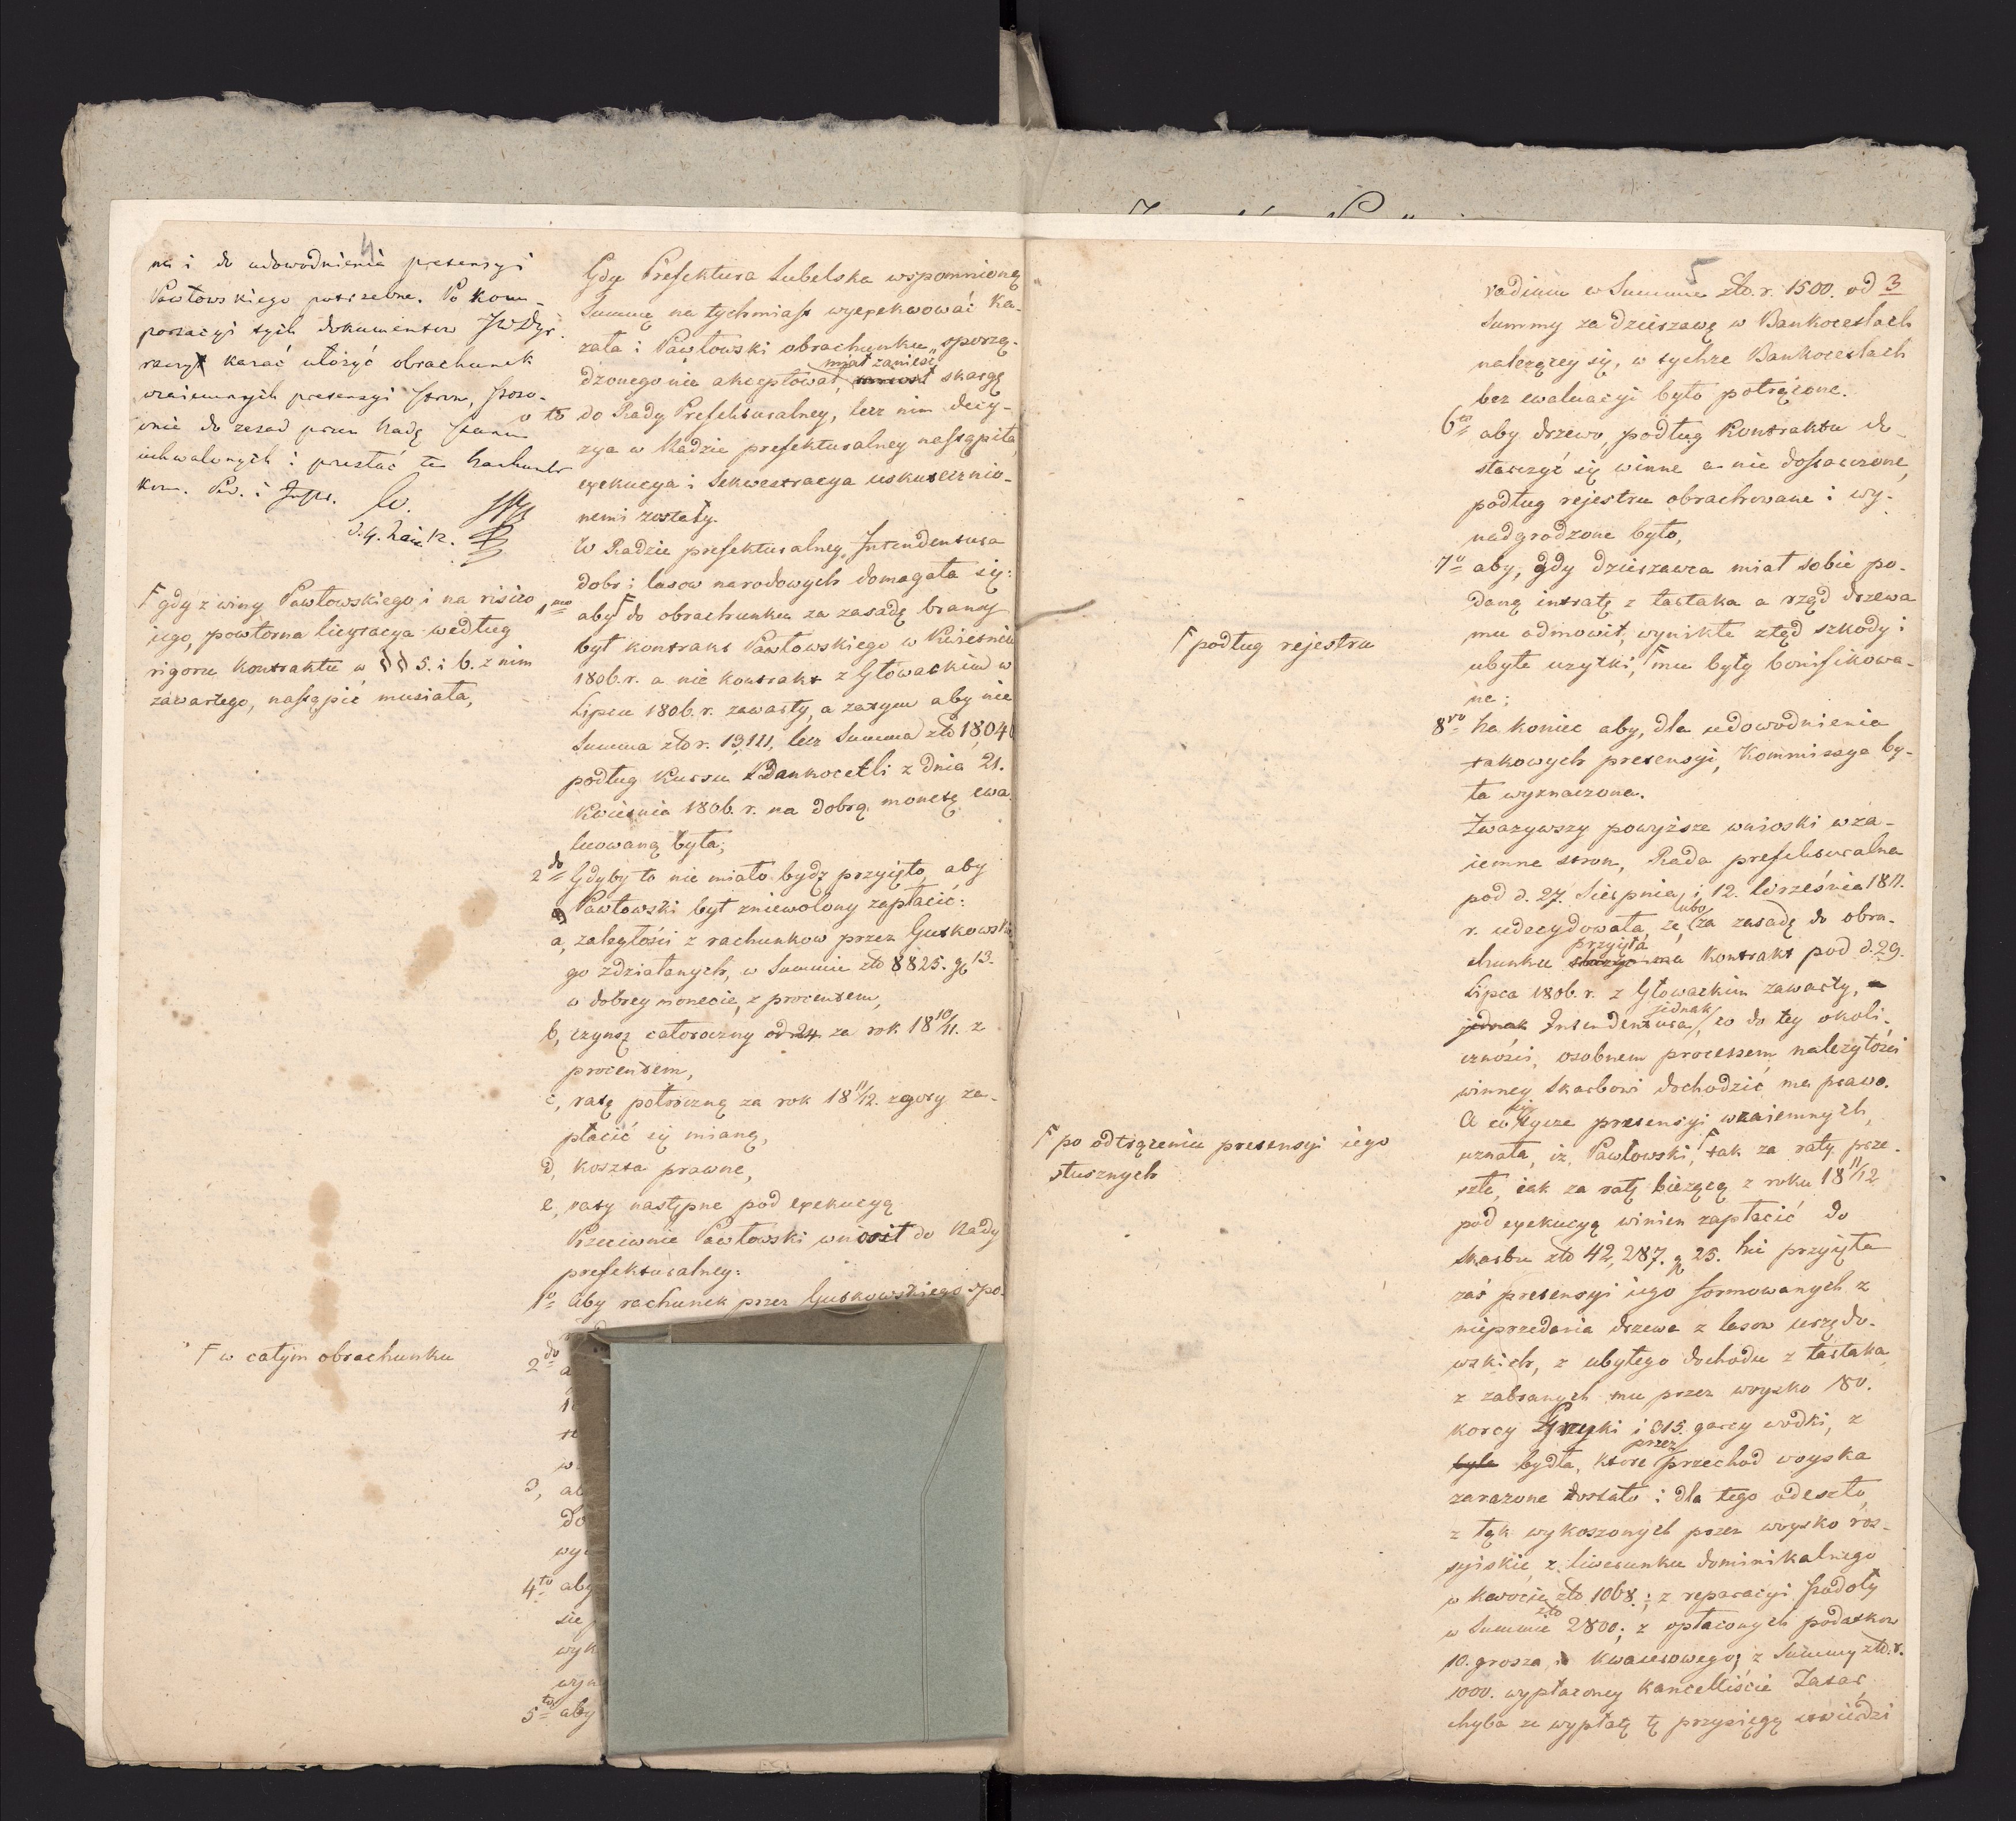 4
na i do udowodnienia pretensyi
Pawłowskiego potrzebne. Po kom-
portacyi tych dokumentow JWDyr.
raczy kazać ułożyć obrachunek
wzaiemnych pretensyi stron, stoso-
wnie do zasad przez Radę Stanu
uchwalonych i przesłać te
d. 4.
F gdy z winy Pawłowskiego i na risico
iego, powtorna licytacya według
rigoru kontraktu w §§ 5. i 6. z nim
zawartego, nastąpić musiała,
F w całym obrachunku
Gdy Prefektura Lubelska wspomnioną
Summę na tychmiast wyexekwować ka-
zała i Pawłowski obrachunku sporzą-
miał zanieść
dzonego nie akceptował, skargę
o to do Rady Prefekturalney, lecz nim decy-
zya w Radzie prefekturalney nastąpiła
exekucya i Sekwestracya uskutecznio-
nemi zostały.
W Radzie prefekturalney, Intendentura
dobr i lasow narodowych domagała się:
1mo aby F do obrachunku za zasadę brany
był kontrakt Pawłowskiego w Kwietniu
1806. r. a nie kontrakt z Głowackim w
Lipcu 1806. r. zawarty, a zatym aby nie
Summa złt r. 13,121, lecz Summa złt 18,040
podług kursu Bankocetli z dnia 21.
Kwietnia 1806. r. na dobrą monetę ewa-
luowaną była;
2do Gdyby to nie miało bydź przyięto, aby
Pawłowski był zniewolony zapłacić:
a, zaległości z rachunkow przez Gutkowskie
go zdziałanych, w Summie złt 8825. gr 13.
w dobrey monecie, z procentem,
b, czynsz całoroczny od 24 za rok 18 10/11. z
procentem,
c, ratę połroczną za rok 18 11/12. zgory za-
płacić się mianą,
d, koszta prawne,
e, raty następne pod exekucyą
Przeciwnie Pawłowski wnosił do Rady
prefekturalney:
1o Aby rachunek przez Gutkowskiego spo-
2do a
3, ab
do
wy
4to aby
sie
wyk
wyn
5to aby
5
vadium w Summie złt. r. 1500. od 3
Summy za dzierzawę w Bankocetlach
należącey się, w tychże Bankocetlach
bez ewaluacyi było potrącone.
6to aby drzewo, podług Kontraktu do-
starczyć się winne a nie dostarczone,
podług rejestru obrachowane i wy-
nadgrodzone było,
7o aby, gdy dzierzawca miał sobie po-
daną intratę z tartaka a rząd drzewa
mu odmowił, wynikłe ztąd szkody i
F podług rejestru
ubyłe użytki, F mu były bonifikowa-
ne;
8vo Na koniec aby, dla udowodnienia
takowych pretensyi, Kommissya by-
ła wyznaczona.
Zważywszy powyższe wnioski wza-
iemne stron, Rada prefekturalna
pod d. 27. Sierpnia i 12. Września 1811.
lubo
r. udecydowała, że, za zasadę do obra-
przyięła
chunku kontrakt pod d. 29.
Lipca 1806. r. z Głowackim zawarty,
jednak
jednak Intendentura, co do tey okoli-
czności, osobnem processem należytości
winney Skarbowi dochodzić ma prawo.
się
A co tycze pretensyi wzaiemnych,
F po odtrąceniu pretensyi iego
słusznych
uznała, iż Pawłowski, F tak za raty prze-
szłe, iak za ratę bieżącą z roku 18 11/12
pod exekucyą winien zapłacić do
Skarbu złt 42,287. gr 25. Nie przyięła
zaś pretensyi iego formowanych z
nieprzedania drzewa z lasow urzędo-
wskich, z ubyłego dochodu z tartaka,
z zabranych mu przez woysko 180.
korcy Gryki i 315. garcy wodki, z
przez
było bydła, ktore przechod woyska
zarażone zostało i dla tego odeszło,
z łąk wykoszonych przez woysko ros-
syiskie, z liwerunku dominikalnego
w kwocie złt 1068.; z reparacyi stodoły
w Summie złt 2800; z opłaconych podatkow
10. grosza, i kwaterowego; z Summy złt. r.
1000. wypłaconey kancelliście Zasac,
chyba że wypłatę tę przysięgą stwierdzi